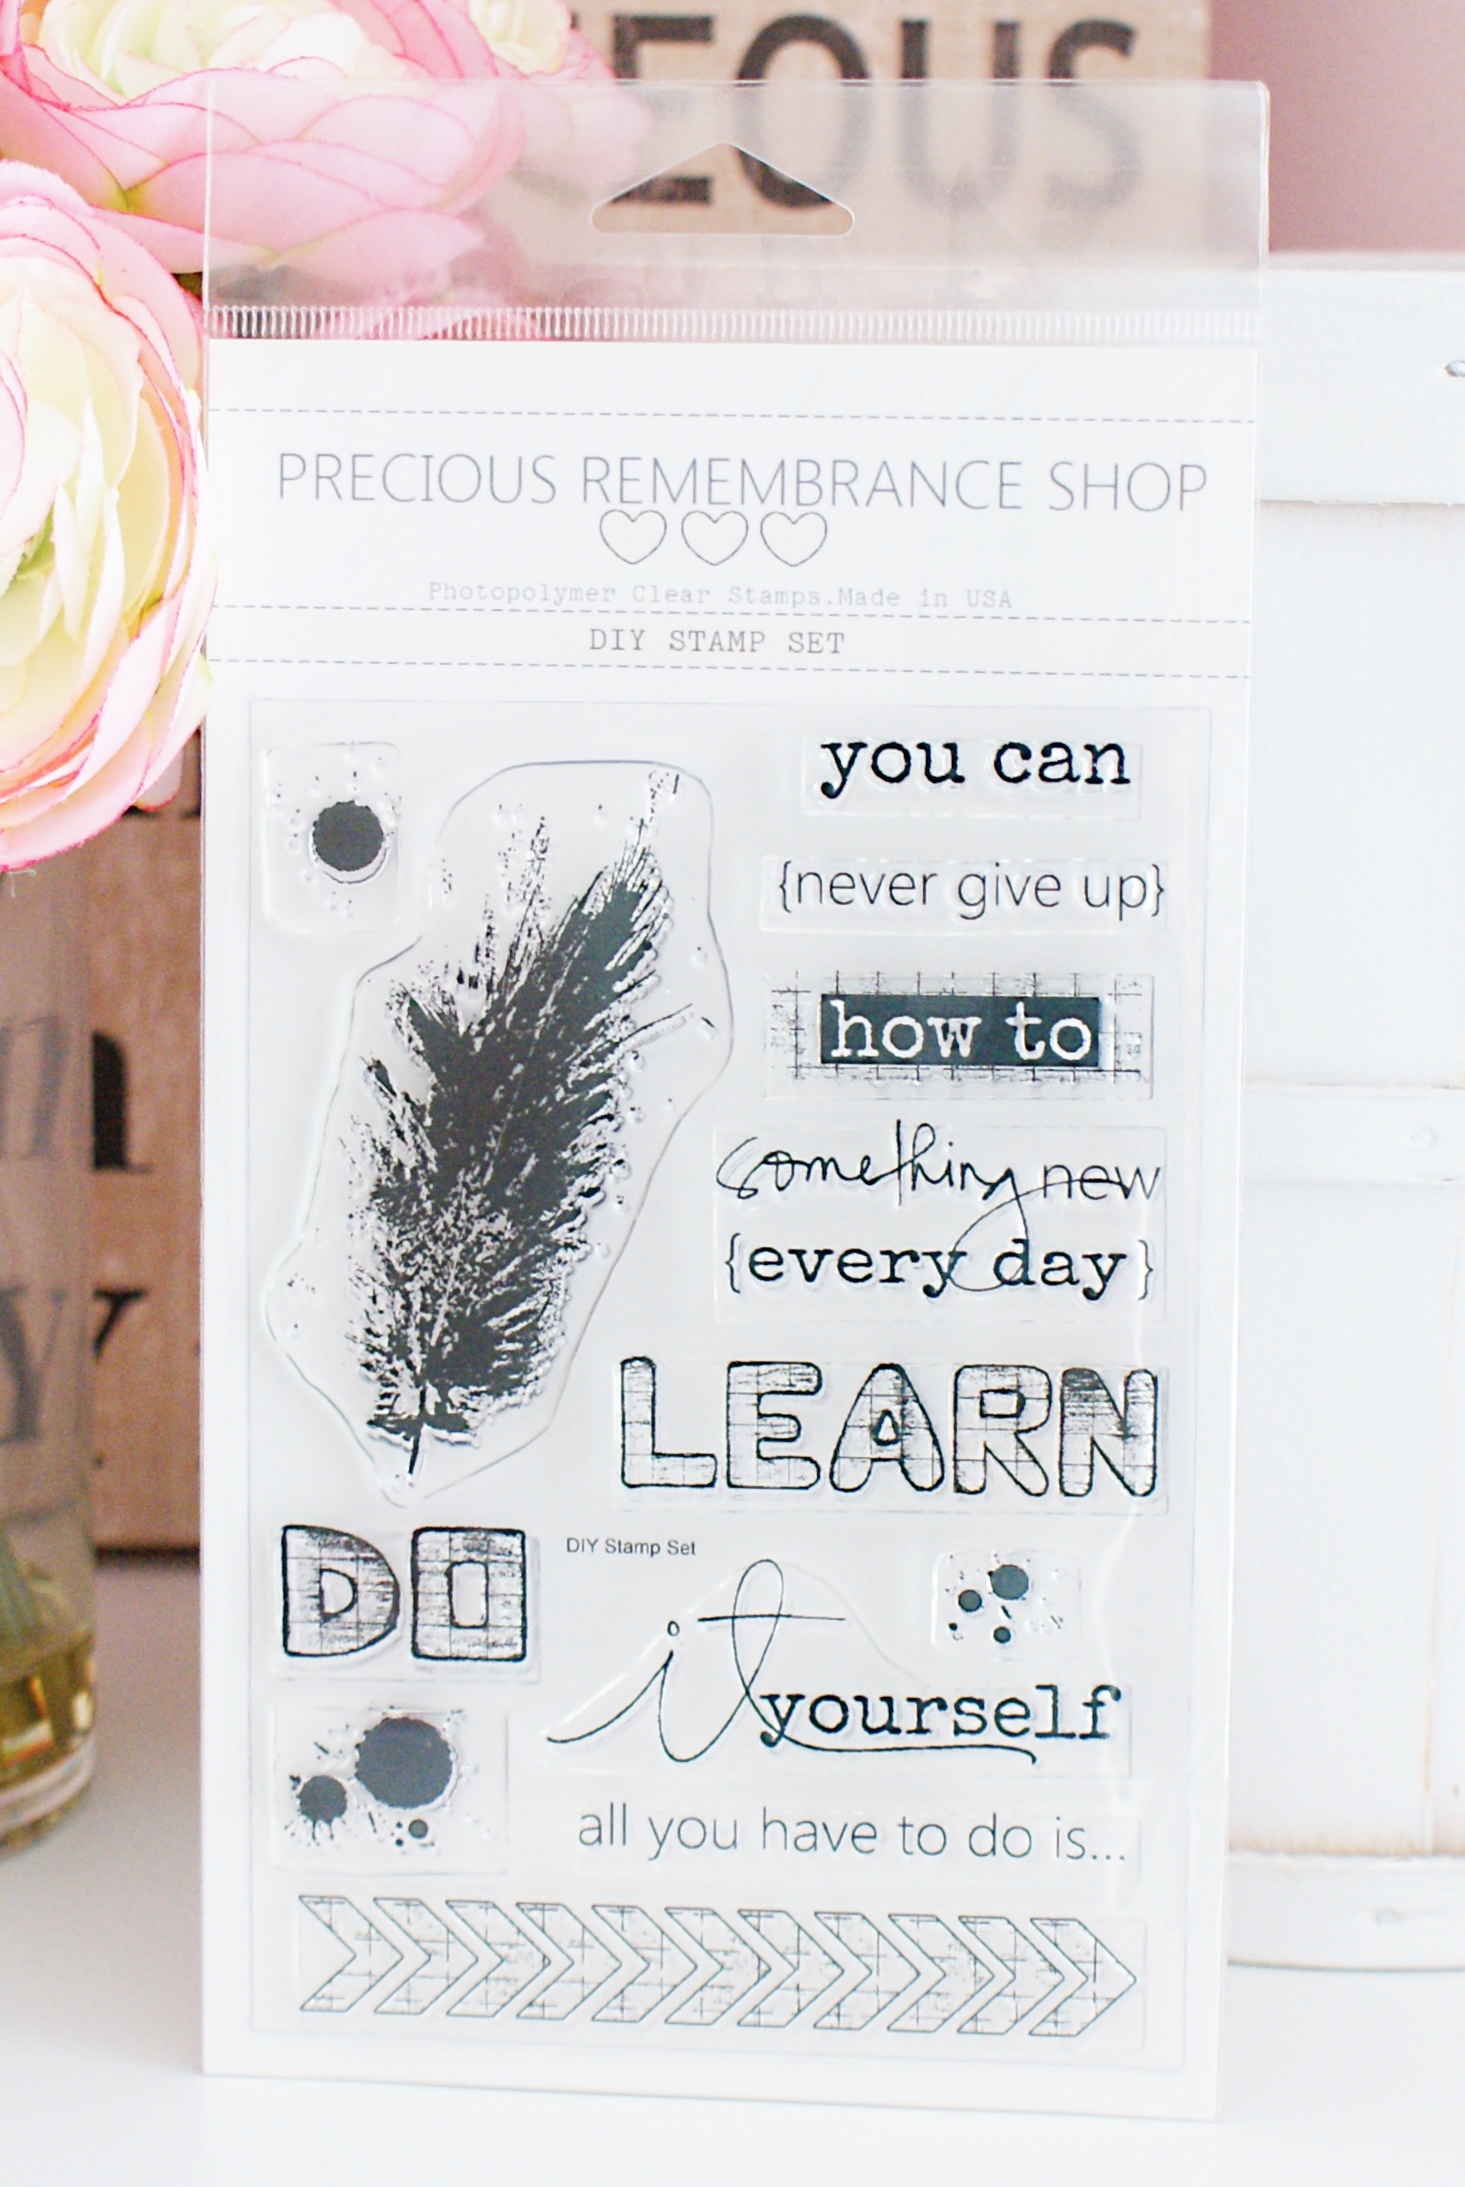 EOUS
PRECIOUS REMEMBRANCE SHOP
Photopolymer Clear Stamps.Made in USA
DIY STAMP SET
you can
{never give up}
how to
something new
{every day}
LEARN
DO
DIY Stamp Set
it
yourself
all you have to do is...